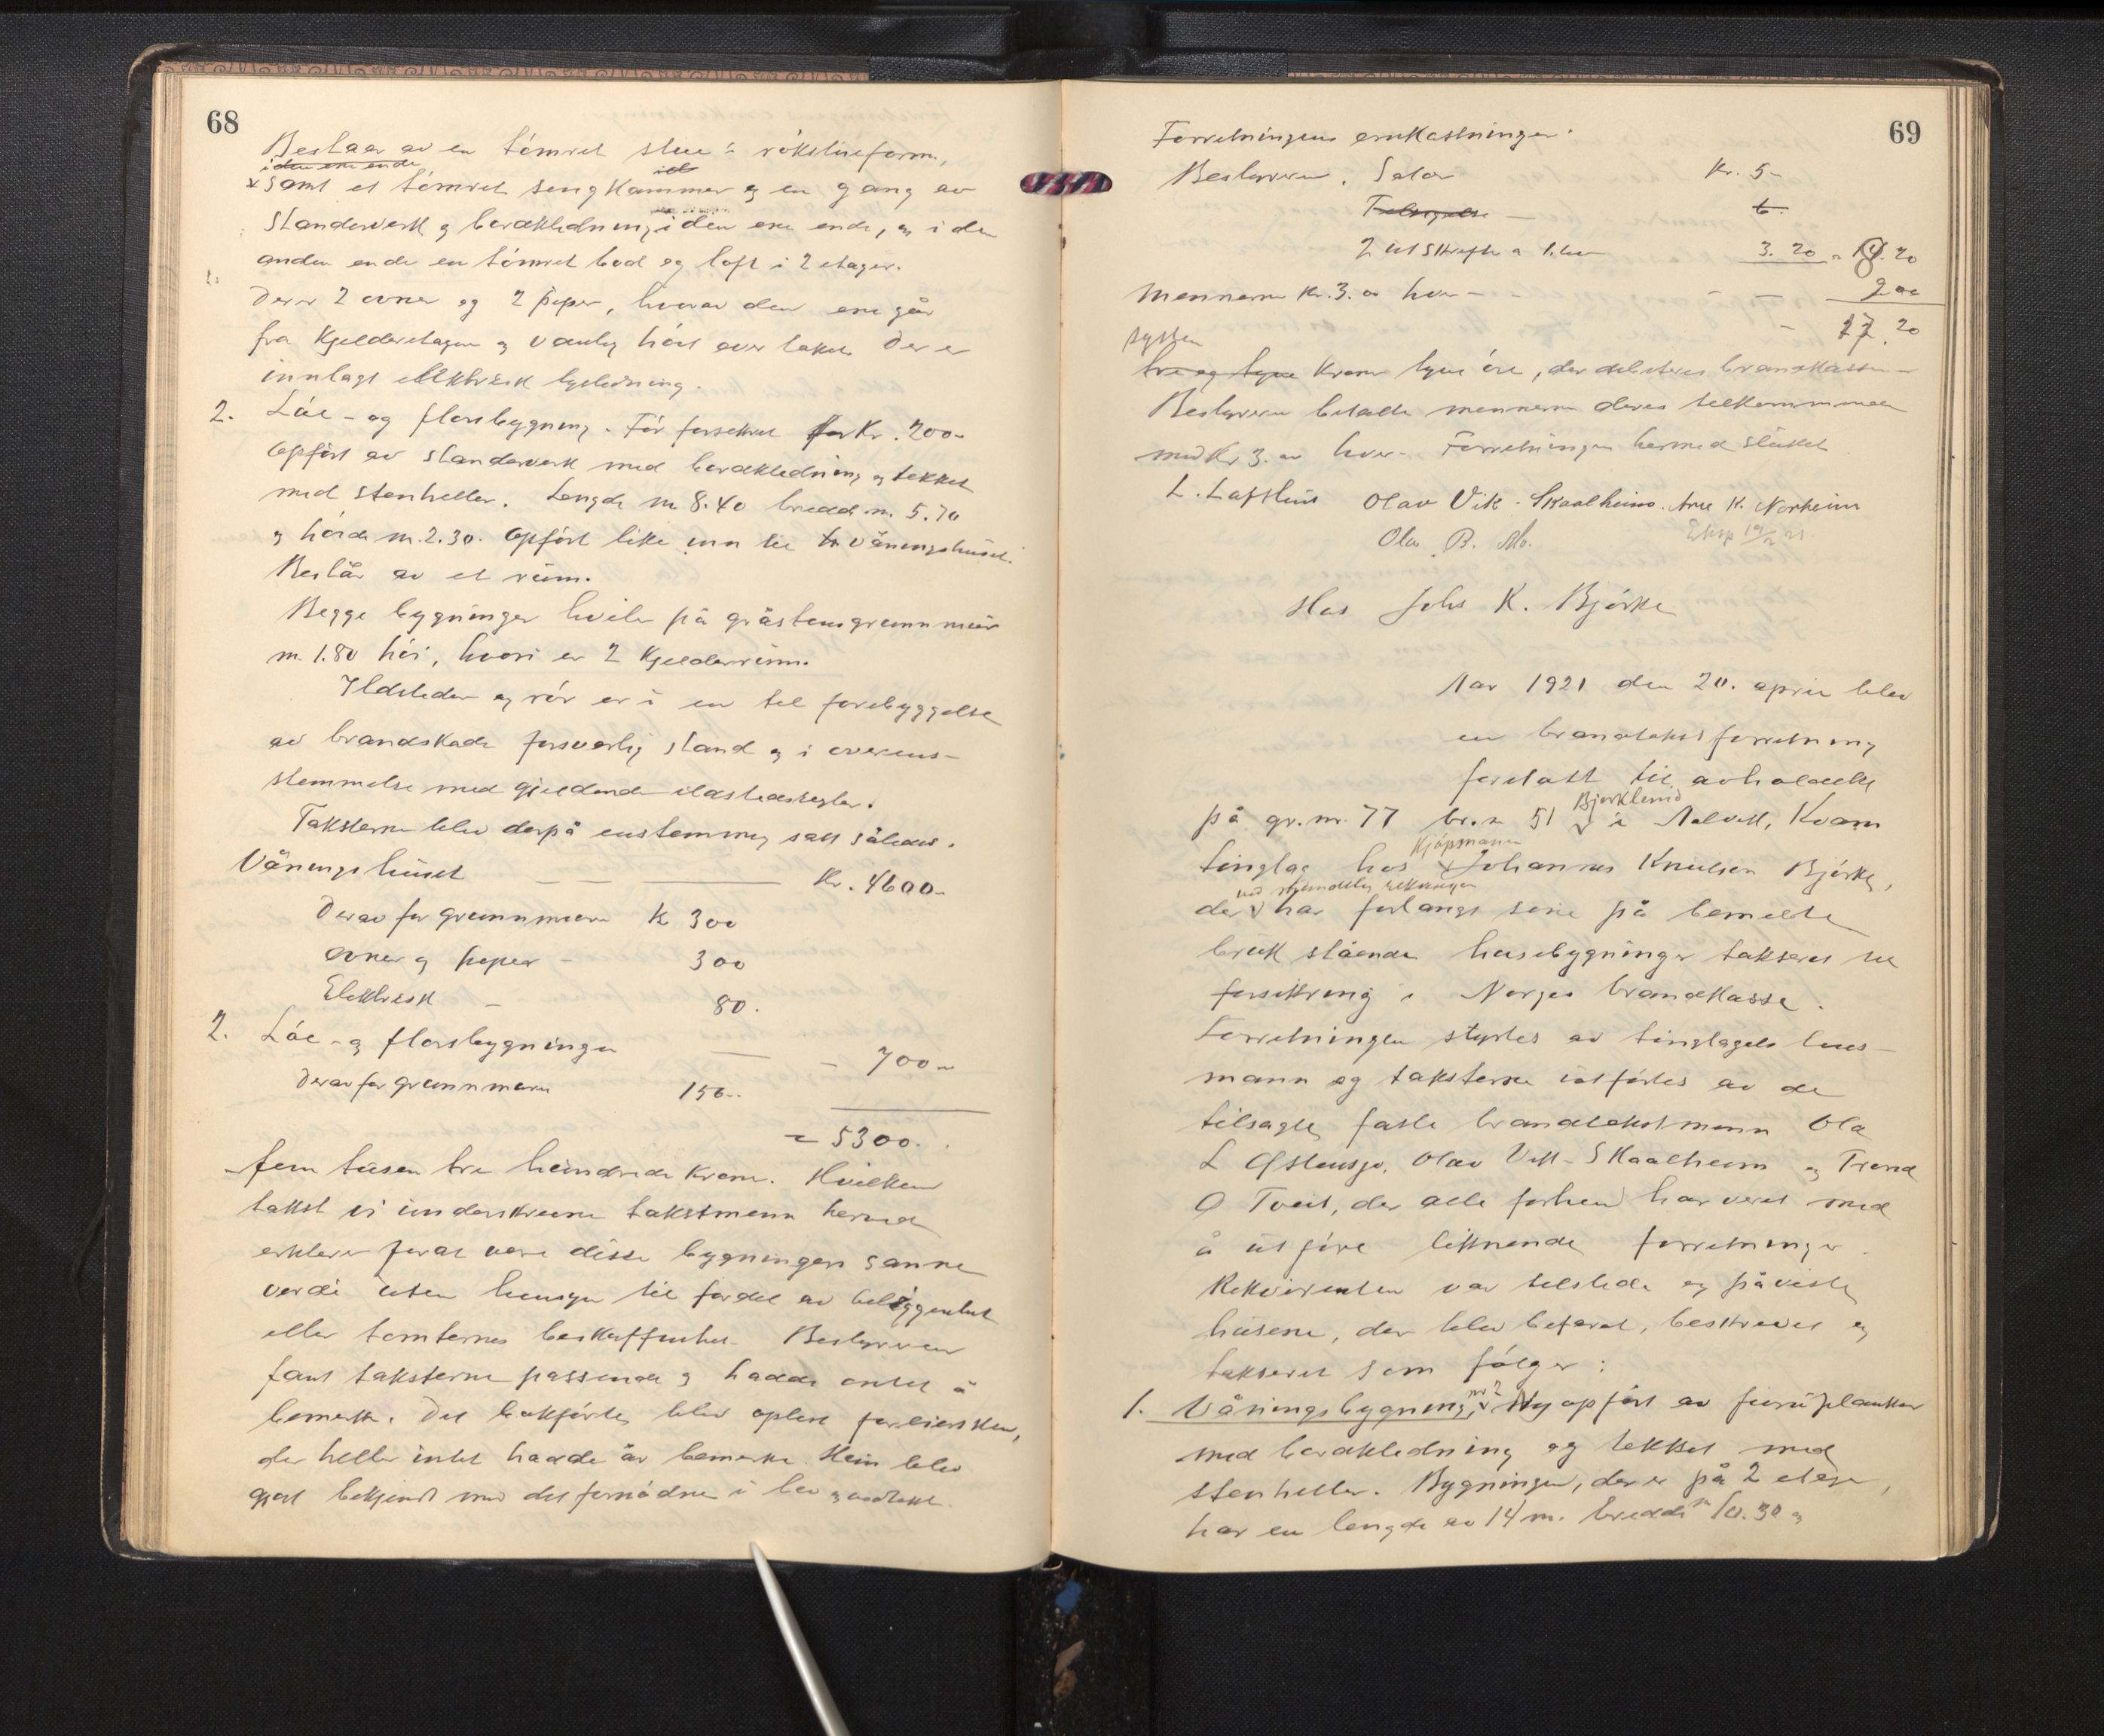 68
Bestaar av en tömret stue i rökstueform,
i den ene ende
samt et tömret sengkammer og en gang av
standerverk og bordklædning i den ene ende, og i den
anden ende en tömret bod og loft i 2 etager.
Der er 2 ovner og 2 piper, hvorav den ene går
fra Kjelderetagen og vanlig höit over taket. Der er
innlagt elektrisk lysledning.
2. Löe- og florsbygning. För forsikret for Kr. 200-
Opfört av standerverk med bordklædning og tekket
med stenheller. Lengde m 8.40 bredde m. 5.70
og höide m. 2.30. Opfört like inn til våningshuset.
Består av et rum.
Begge bygninger hviler på gråstensgrunnmur
m. 1.80 höi, hvori er 2 Kjelderrum.
Ildsteder og rör er i en til forebyggelse
av brandskade forsvarlig stand og i overens-
stemmelse med gjeldende ildstedsregler.
Taksterne blev derpå enstemmig satt således.
Våningshuset Kr. 4600-
Derav for grunnmuren K 300
ovner og piper - 300
Elektrisk - 80.
2. Löe- og florsbygningen - 700-
Derav for grunnmuren 150-
= 5300.
fem tusen tre hundrede Kroner. Hvilken
takst vi underskrevne takstmenn herved
erklærer for at være disse bygningers sanne
verdi uten hensyn til fordel av beliggenhet
eller tomternes beskaffenhet. Bestyreren
fant taksterne passende og hadde intet å
bemerke. Det bokförte blev oplest for eieren,
der heller intet hadde å bemerke. Han blev
gjort bekjendt med det fornödne i lov og vedtekt.
69
Forretningens omkostninger:
Bestyreren, Salær Kr. 5-
2 utskrifter a 1.60 3.20 = 8.20
Mennerne Kr. 3. a hver - 9.00
17.20
sytten
tre og tyve Kroner tyve öre, der debiteres brandkassen -
Bestyreren betalte mennerne deres tilkommende
med Kr 3. a hver. Forretningen hermed sluttet
L. Lofthus Olav Vik-Skaalheim. Arne K. Norheim
Ola B. Mo.
Hos Johs K. Björke
Aar 1921 den 20. april blev
en brandtakstforretning
foretatt til avholdelse
Bjorklund
på gr.nr. 77 br.n 51 i Aalvik, Kvam
Kjöpmann
tinglag hos Johannes Knutsen Björke,
der har forlangt sine på bemelte
bruk stående husebygninger takseret til
forsikring i Norges brandkasse.
Forretningen styrtes av tinglagets lens-
mann og taksterne utförtes av de
tilsagte faste brandtakstmenn Ola
L Ofstensjö, Olav Vik-Skaalheim og Trond
O Tveit, der alle forhen har veret med
å utföre liknende forretninger.
Rekvirenten var tilstede og påviste
husene, der blev befaret, beskrevet og
takseret som fölger:
1. Våningsbygning, nr 2 Ny opfört av furuplanker
med bordklædning og tekket med
stenheller. Bygningen, der er på 2 etager,
har en lengde av 14 m. bredde m 10.30 og